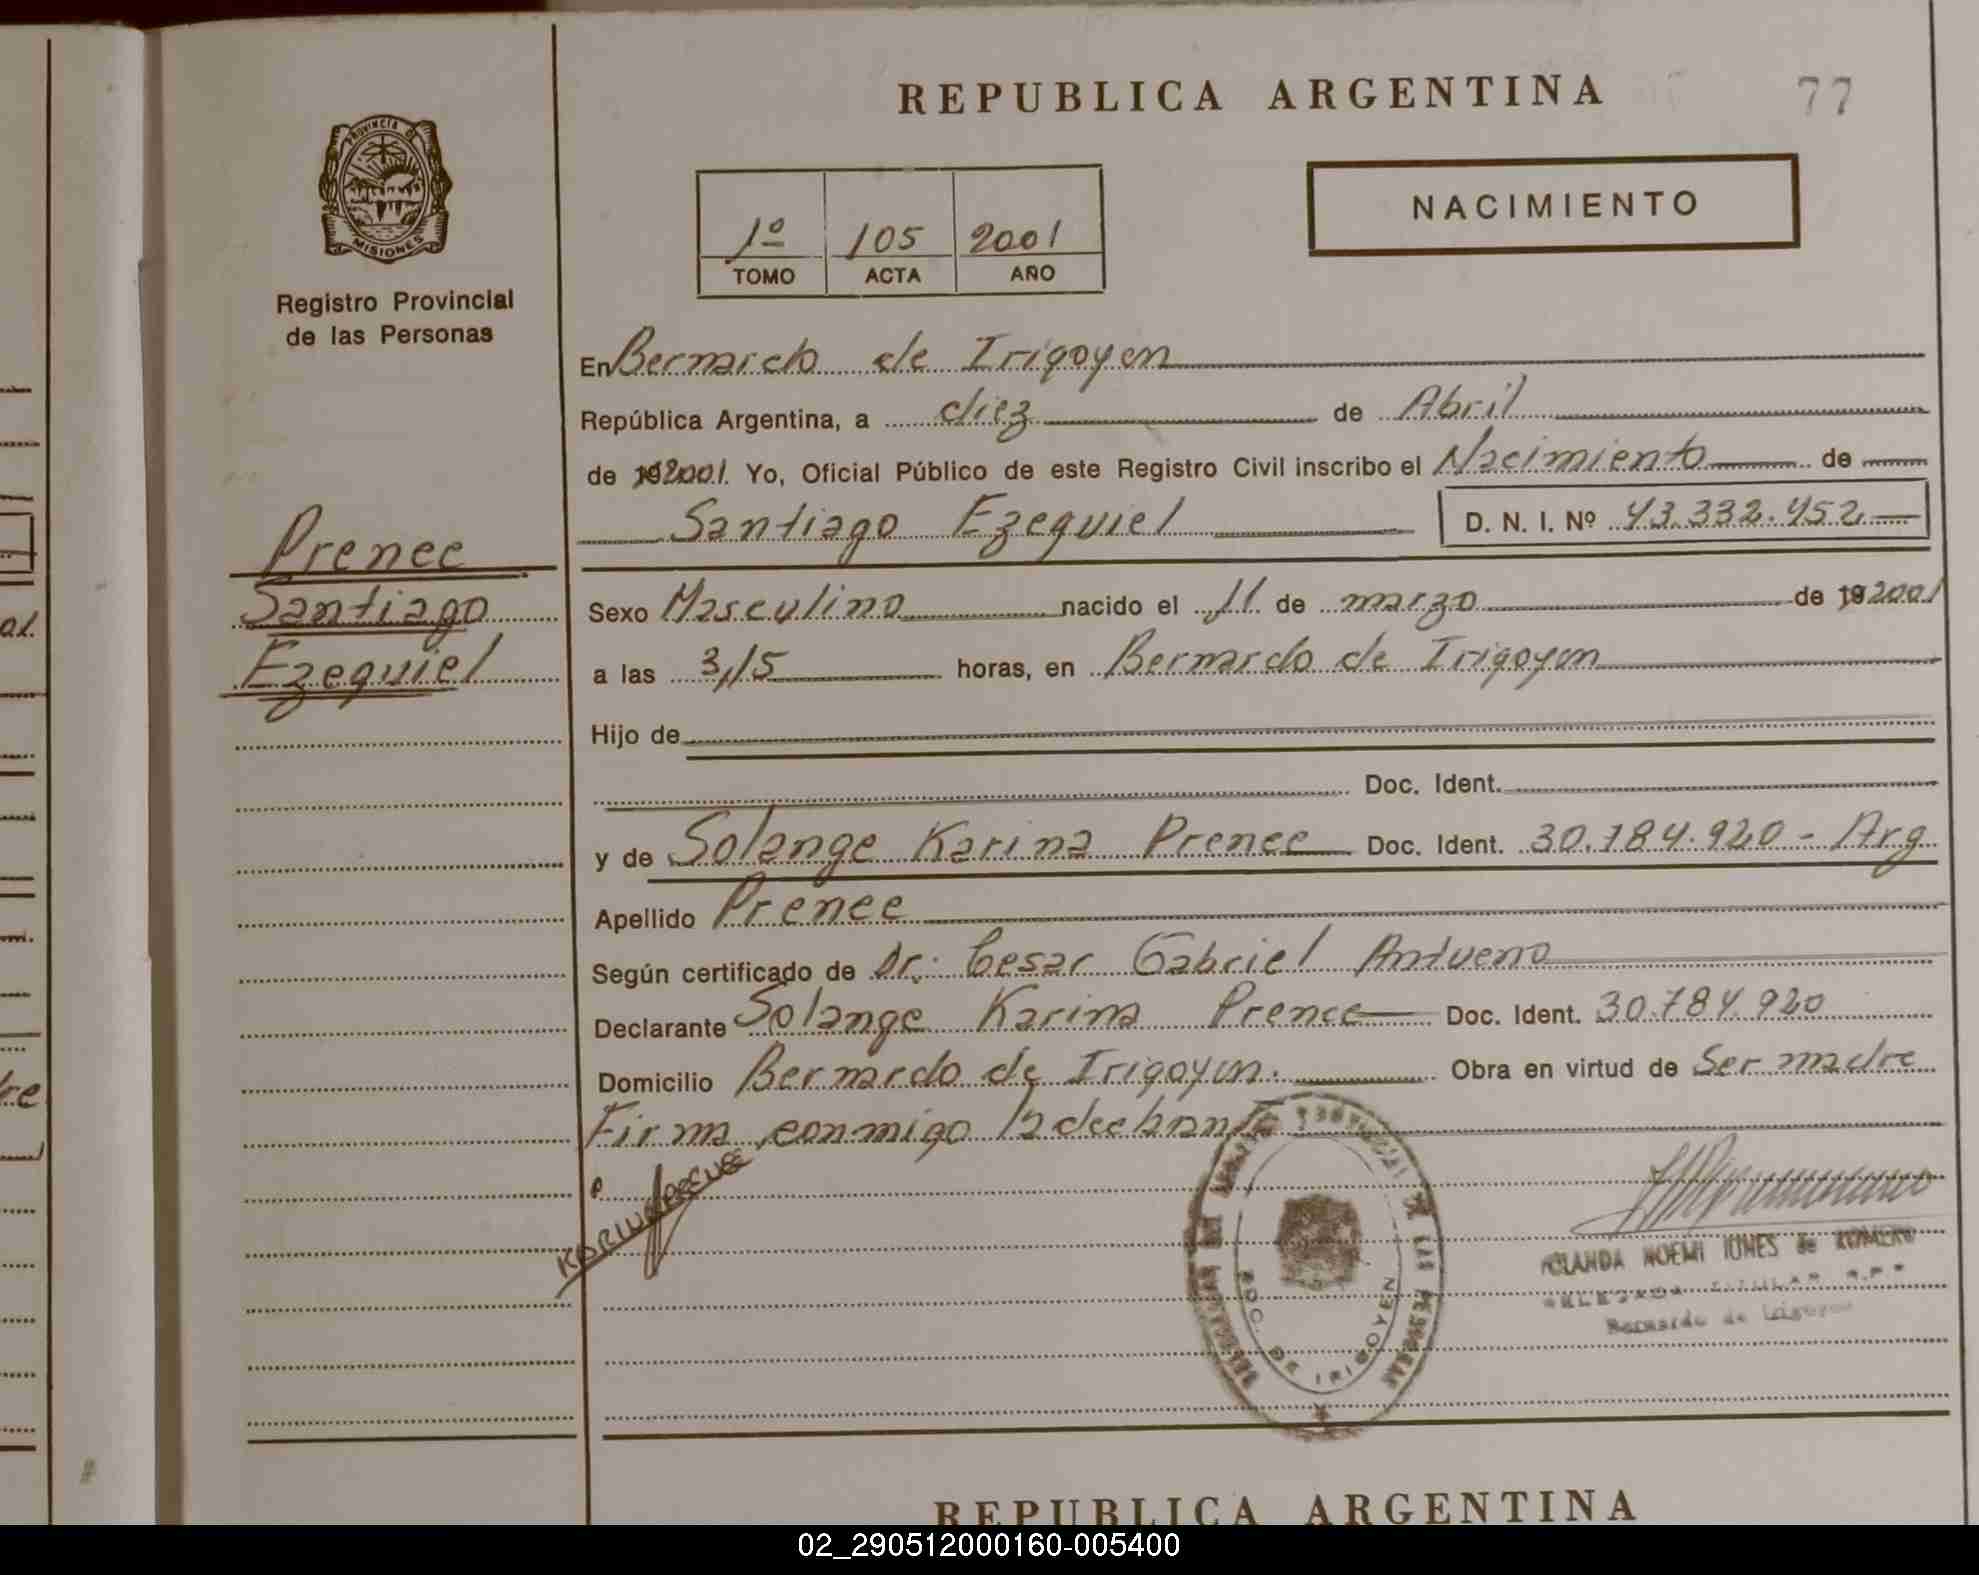 REPUBLICA ARGENTINA
77
PROVINCIA DE
MISIONES
Registro Provincial
de las Personas
1º 105 2001
TOMO ACTA AÑO
NACIMIENTO
En Bernardo de Irigoyen
República Argentina, a diez de Abril
de 192001. Yo, Oficial Público de este Registro Civil inscribo el Nacimiento de
Santiago Ezequiel D. N. I. Nº 43.332.452
Prenee
Santiago
Ezequiel
Sexo Masculino nacido el 11 de marzo de 192001
a las 3,15 horas, en Bernardo de Irigoyen
Hijo de
Doc. Ident.
y de Solange Karina Prenee Doc. Ident. 30.784.920 - Arg.
Apellido Prenee
Según certificado de Dr. Cesar Gabriel
Declarante Solange Karina Prenee Doc. Ident. 30.784.920
Domicilio Bernardo de Irigoyen. Obra en virtud de Ser madre
Firma conmigo la declarante
KARINA PRENEE
DE LAS PERSONAS
BDO. DE IRIGOYEN
NOEMI de ROMERO
DELEGADA TITULAR R.P.
Bernardo de Irigoyen
REPUBLICA ARGENTINA
02_290512000160-005400